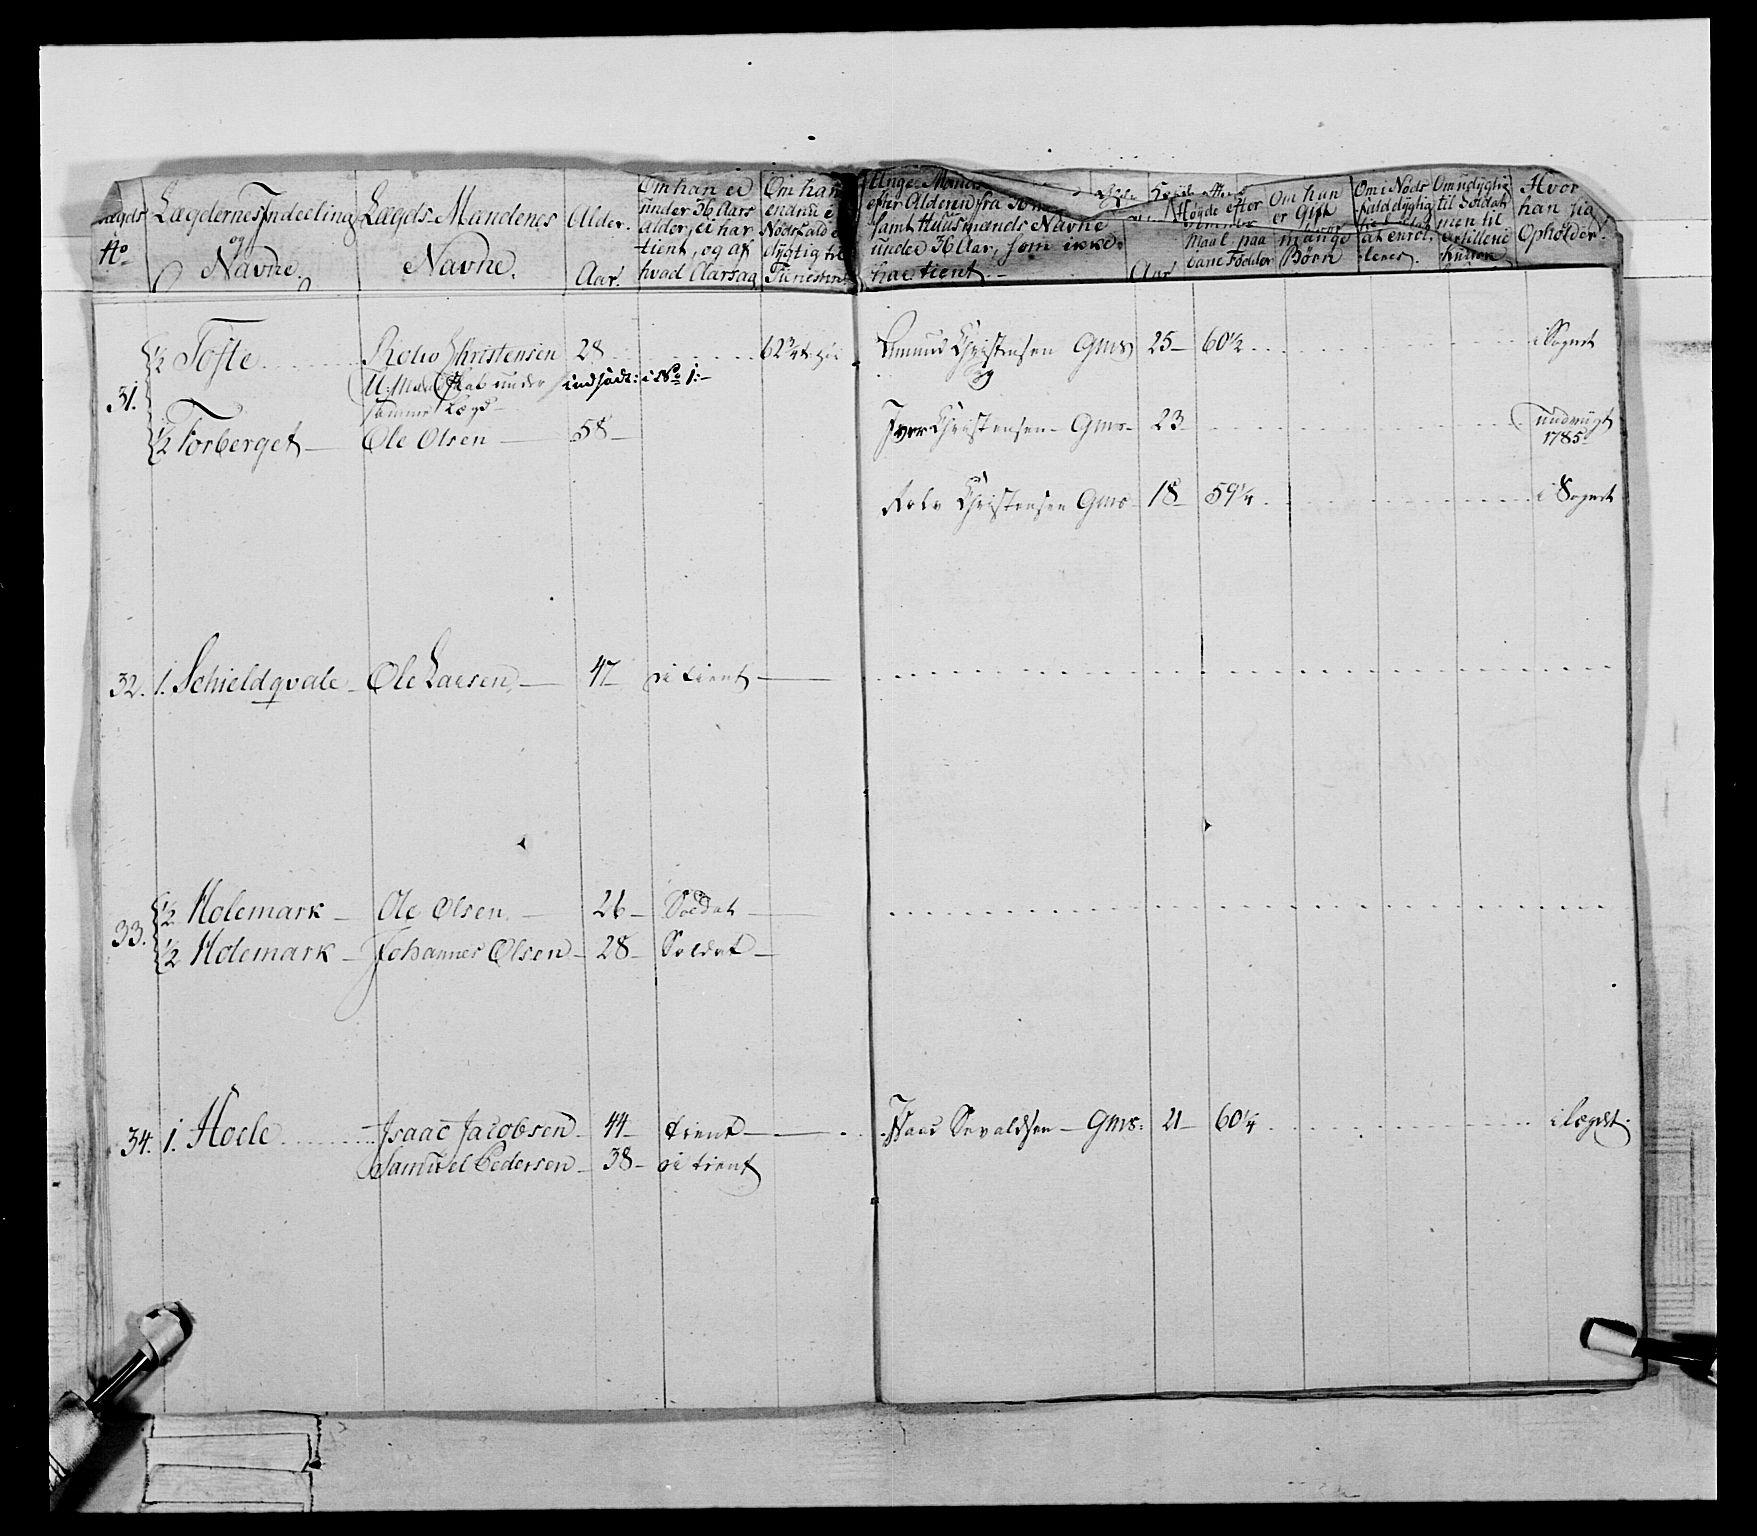 Lægds No
Lægdernes Indeeling og Navne.
Lægds-Mandenes Navne.
Alder. Aar.
Om han er under 36 Aars alder, ei har tient, og af hvad Aarsag
Om han endnu e Nödsfald e dygtig til Tienesten
Unge Mands
efter Alderen fra
samt Huusmænds Navne
under 36 Aar, som ikke
har tient
Aar
Höyde efter
Maal paa
bare Födder
Om han er Gift
mange Börn
Om i Nöds fald dygtig at enrol- leres.
Om udygtig til Soldat men til Artillerie
Hvor han sig Opholder.
31. ½ Tofte Christensen 28 62¾ Amund Christensen Gms 25 60½ i Sognet
M: under indfödt: i No 1:
samme Lægd
½ Forberget Ole Olsen 58 Iver Christensen Gms 23 1785
Christensen Gms 18 59¼ i Sognet
32. 1. Schieldqvale Ole Larsen 47 ei tient
33. ½ Holemark Ole Olsen 26 Soldat
½ Holemark Johannes Olsen 28 Soldat
34. 1. Hoele Isaac Jacobsen 44 tient Sevaldsen Gms: 21 60¼ i Lægdet
Samuel Pedersen 38 ei tient